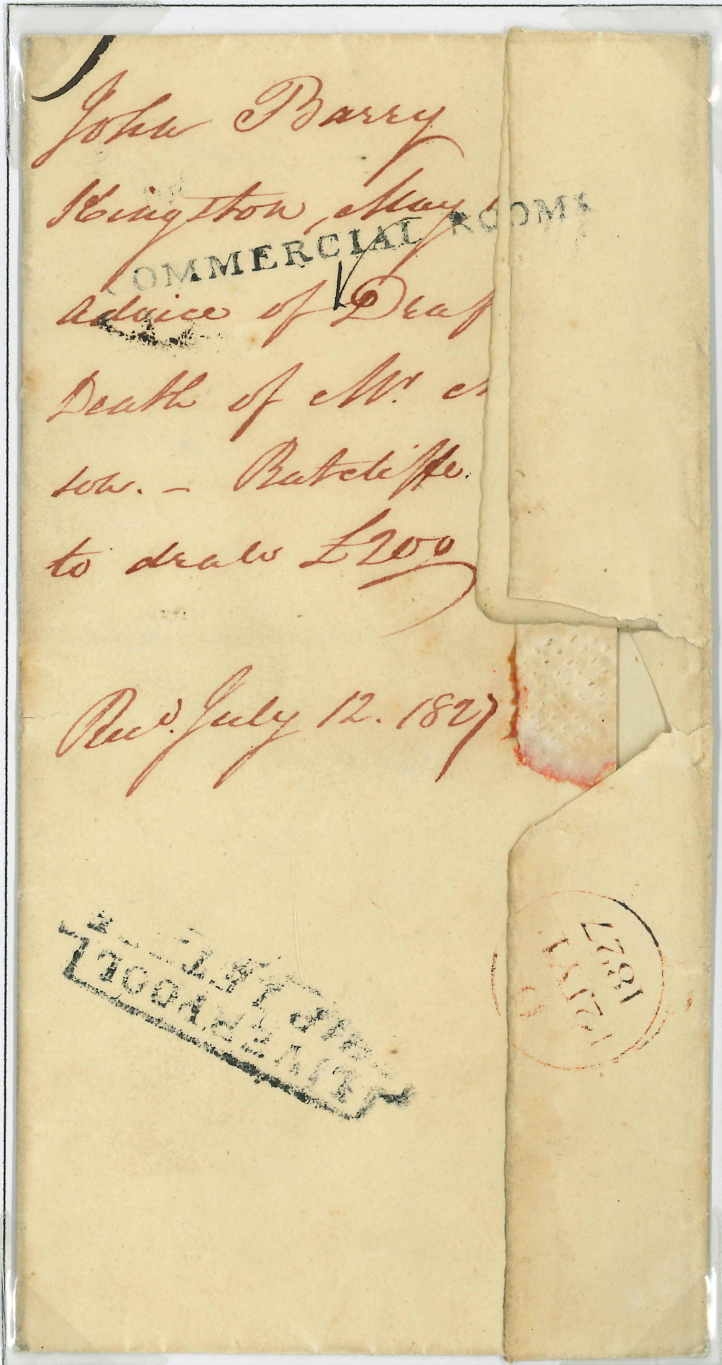 John Barry
Kingston, May
COMMERCIAL ROOMS
advice of Draf
Death of Mr.
son. – Ratcliffe
to draw £200
Recd. July 12. 1827
LIVERPOOL
SHIP LET
12 JY
1827